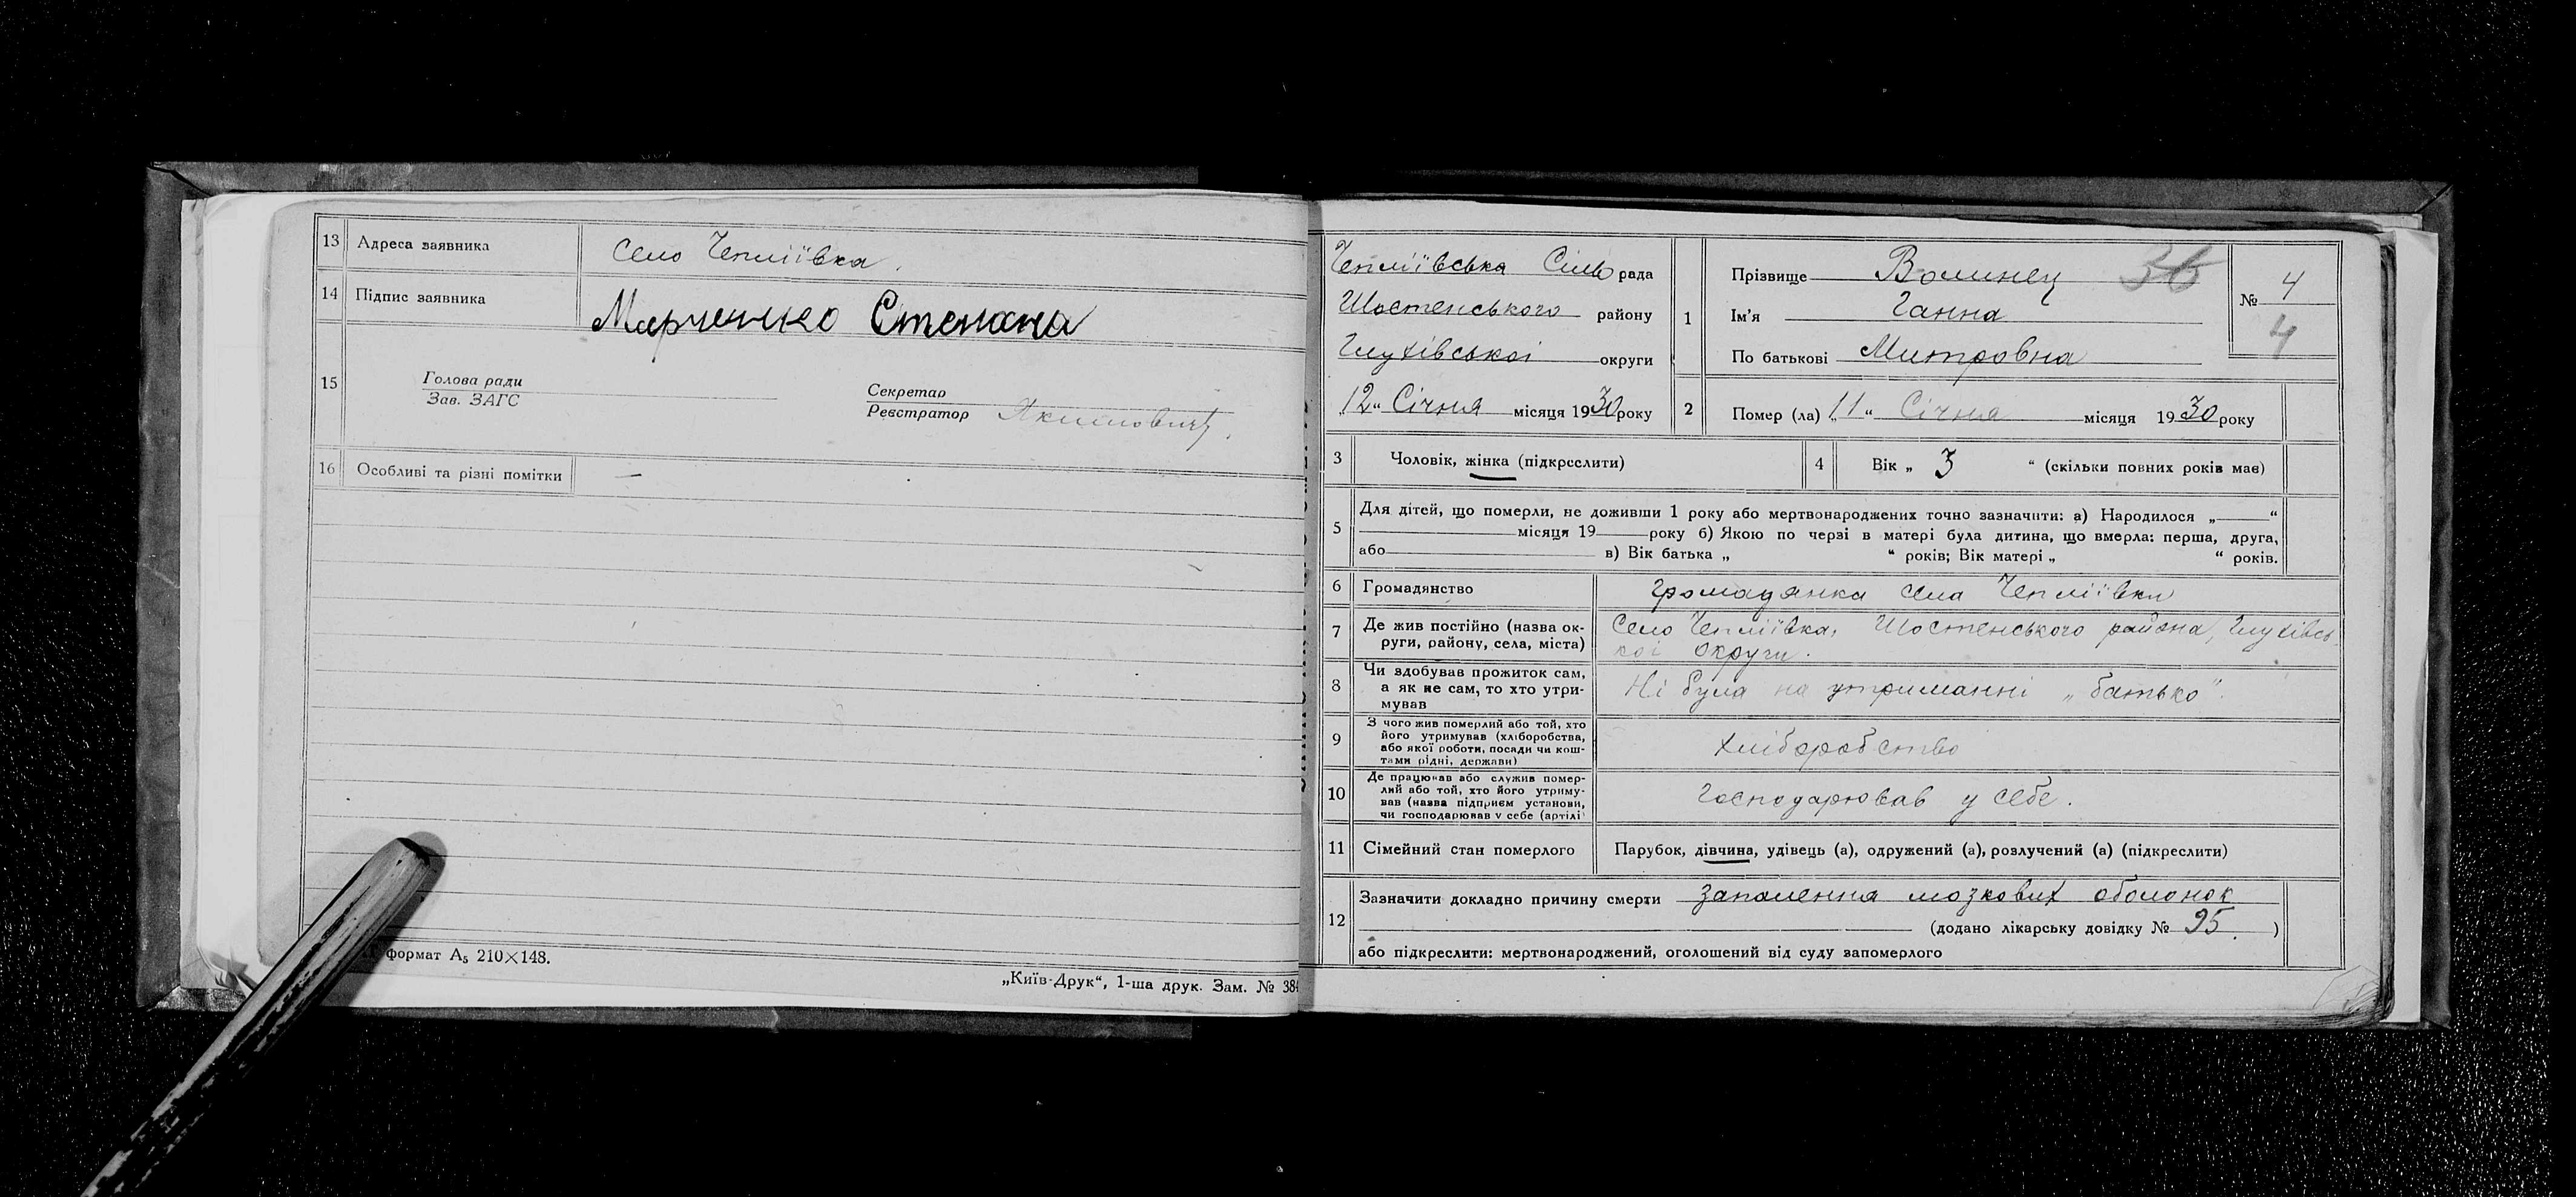 13 Адреса заявника село Чепліївка.
14 Підпис заявника Марченко Степана
15 Голова ради
Зав. ЗАГС
Секретар
Реєстратор
16 Особливі та різні помітки —
формат А5 210×148.
„Київ-Друк“, 1-ша друк. Зам. № 384
Чепліївська Сіль рада
Шостенського району
Глухівської округи
„12“ Січня місяця 1930 року
1 Прізвище Волинец 36
Ім'я Ганна
По батькові Митровна
№ 4
4
2 Помер (ла) „11“ Січня місяця 1930 року
3 Чоловік, жінка (підкреслити)
4 Вік „ 3 “ (скільки повних років має)
5 Для дітей, що померли, не доживши 1 року або мертвонароджених точно зазначити: а) Народилося „ “
місяця 19 року б) Якою по черзі в матері була дитина, що вмерла: перша, друга,
або в) Вік батька „ “ років; Вік матері „ “ років.
6 Громадянство громадянка села Чепліївки
7 Де жив постійно (назва ок-
руги, району, села, міста)
Село Чепліївка, Шостенського района, Глухівсь
кої округи.
8 Чи здобував прожиток сам,
а як не сам, то хто утри-
мував
Ні була на утриманні „батько“.
9 З чого жив померлий або той, хто
його утримував (хліборобства,
або якої роботи, посади чи кош-
тами рідні, держави)
хліборобство
10 Де працював або служив помер-
лий або той, хто його утриму-
вав (назва підприєм установи,
чи господарював у себе (артілі)
господарював у себе.
11 Сімейний стан померлого Парубок, дівчина, удівець (а), одружений (а), розлучений (а) (підкреслити)
12 Зазначити докладно причину смерти запалення мозкових оболонок
(додано лікарську довідку № 95. )
або підкреслити: мертвонароджений, оголошений від суду запомерлого